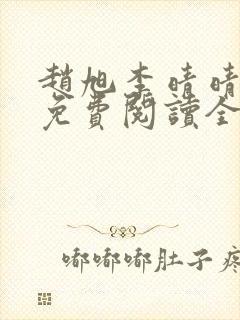 趙旭李晴晴
免費閱讀全
嘟嘟嘟肚子疼